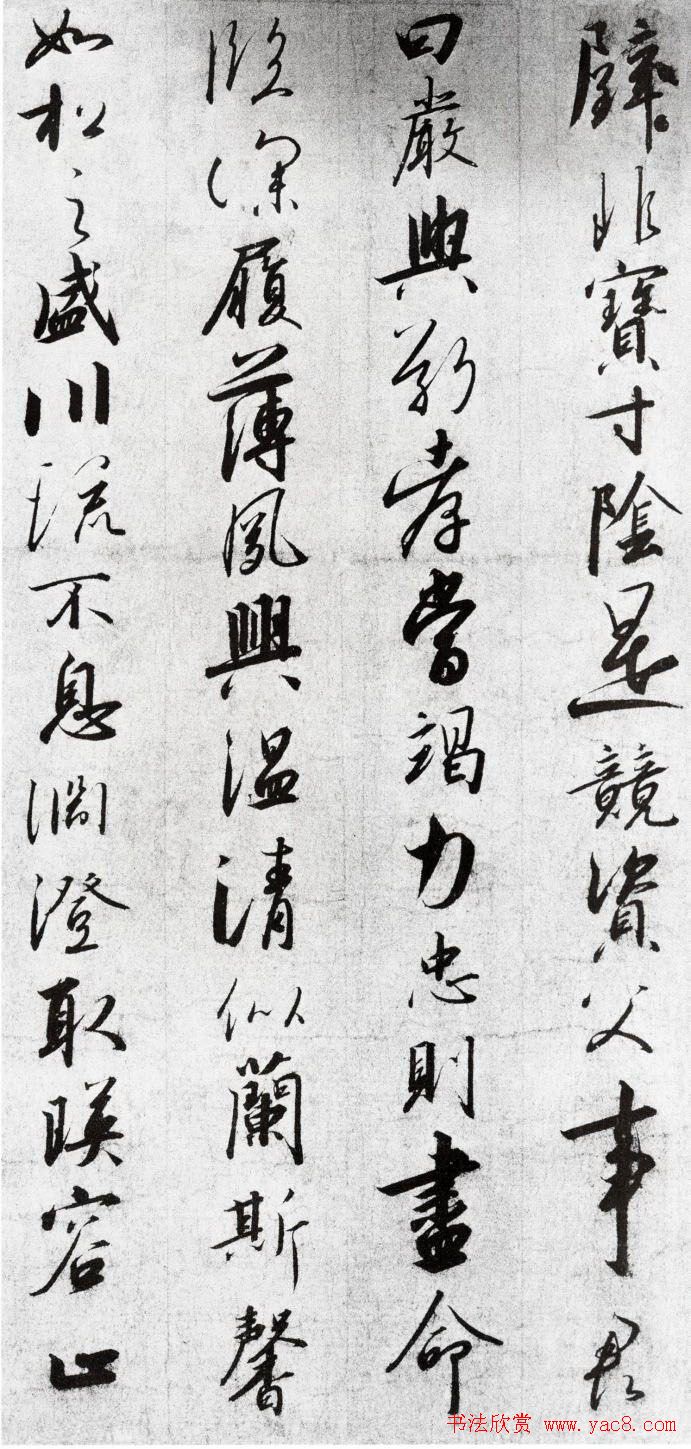 璧非寶寸陰是競資父事君
曰嚴與敬孝當竭力忠則盡命
臨深履薄夙興温凊似蘭斯馨
如松之盛川流不息淵澄取暎容止
书法欣赏 www.yac8.com